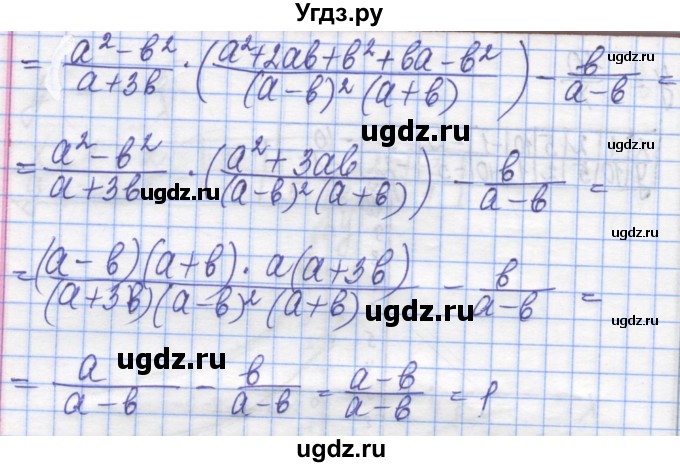 Угдз.ру
= (a² - b²)/(a + 3b) · ((a² + 2ab + b² + ba - b²)/((a - b)² (a + b))) - b/(a - b) =
ugdz.ru
ugdz.ru
= (a² - b²)/(a + 3b) · ((a² + 3ab)/((a - b)² (a + b))) - b/(a - b) =
ugdz.ru
ugdz.ru
= ((a - b)(a + b) · a(a + 3b))/((a + 3b)(a - b)² (a + b)) - b/(a - b) =
ugdz.ru
ugdz.ru
ugdz.ru
= a/(a - b) - b/(a - b) = (a - b)/(a - b) = 1
ugdz.ru
ugdz.ru